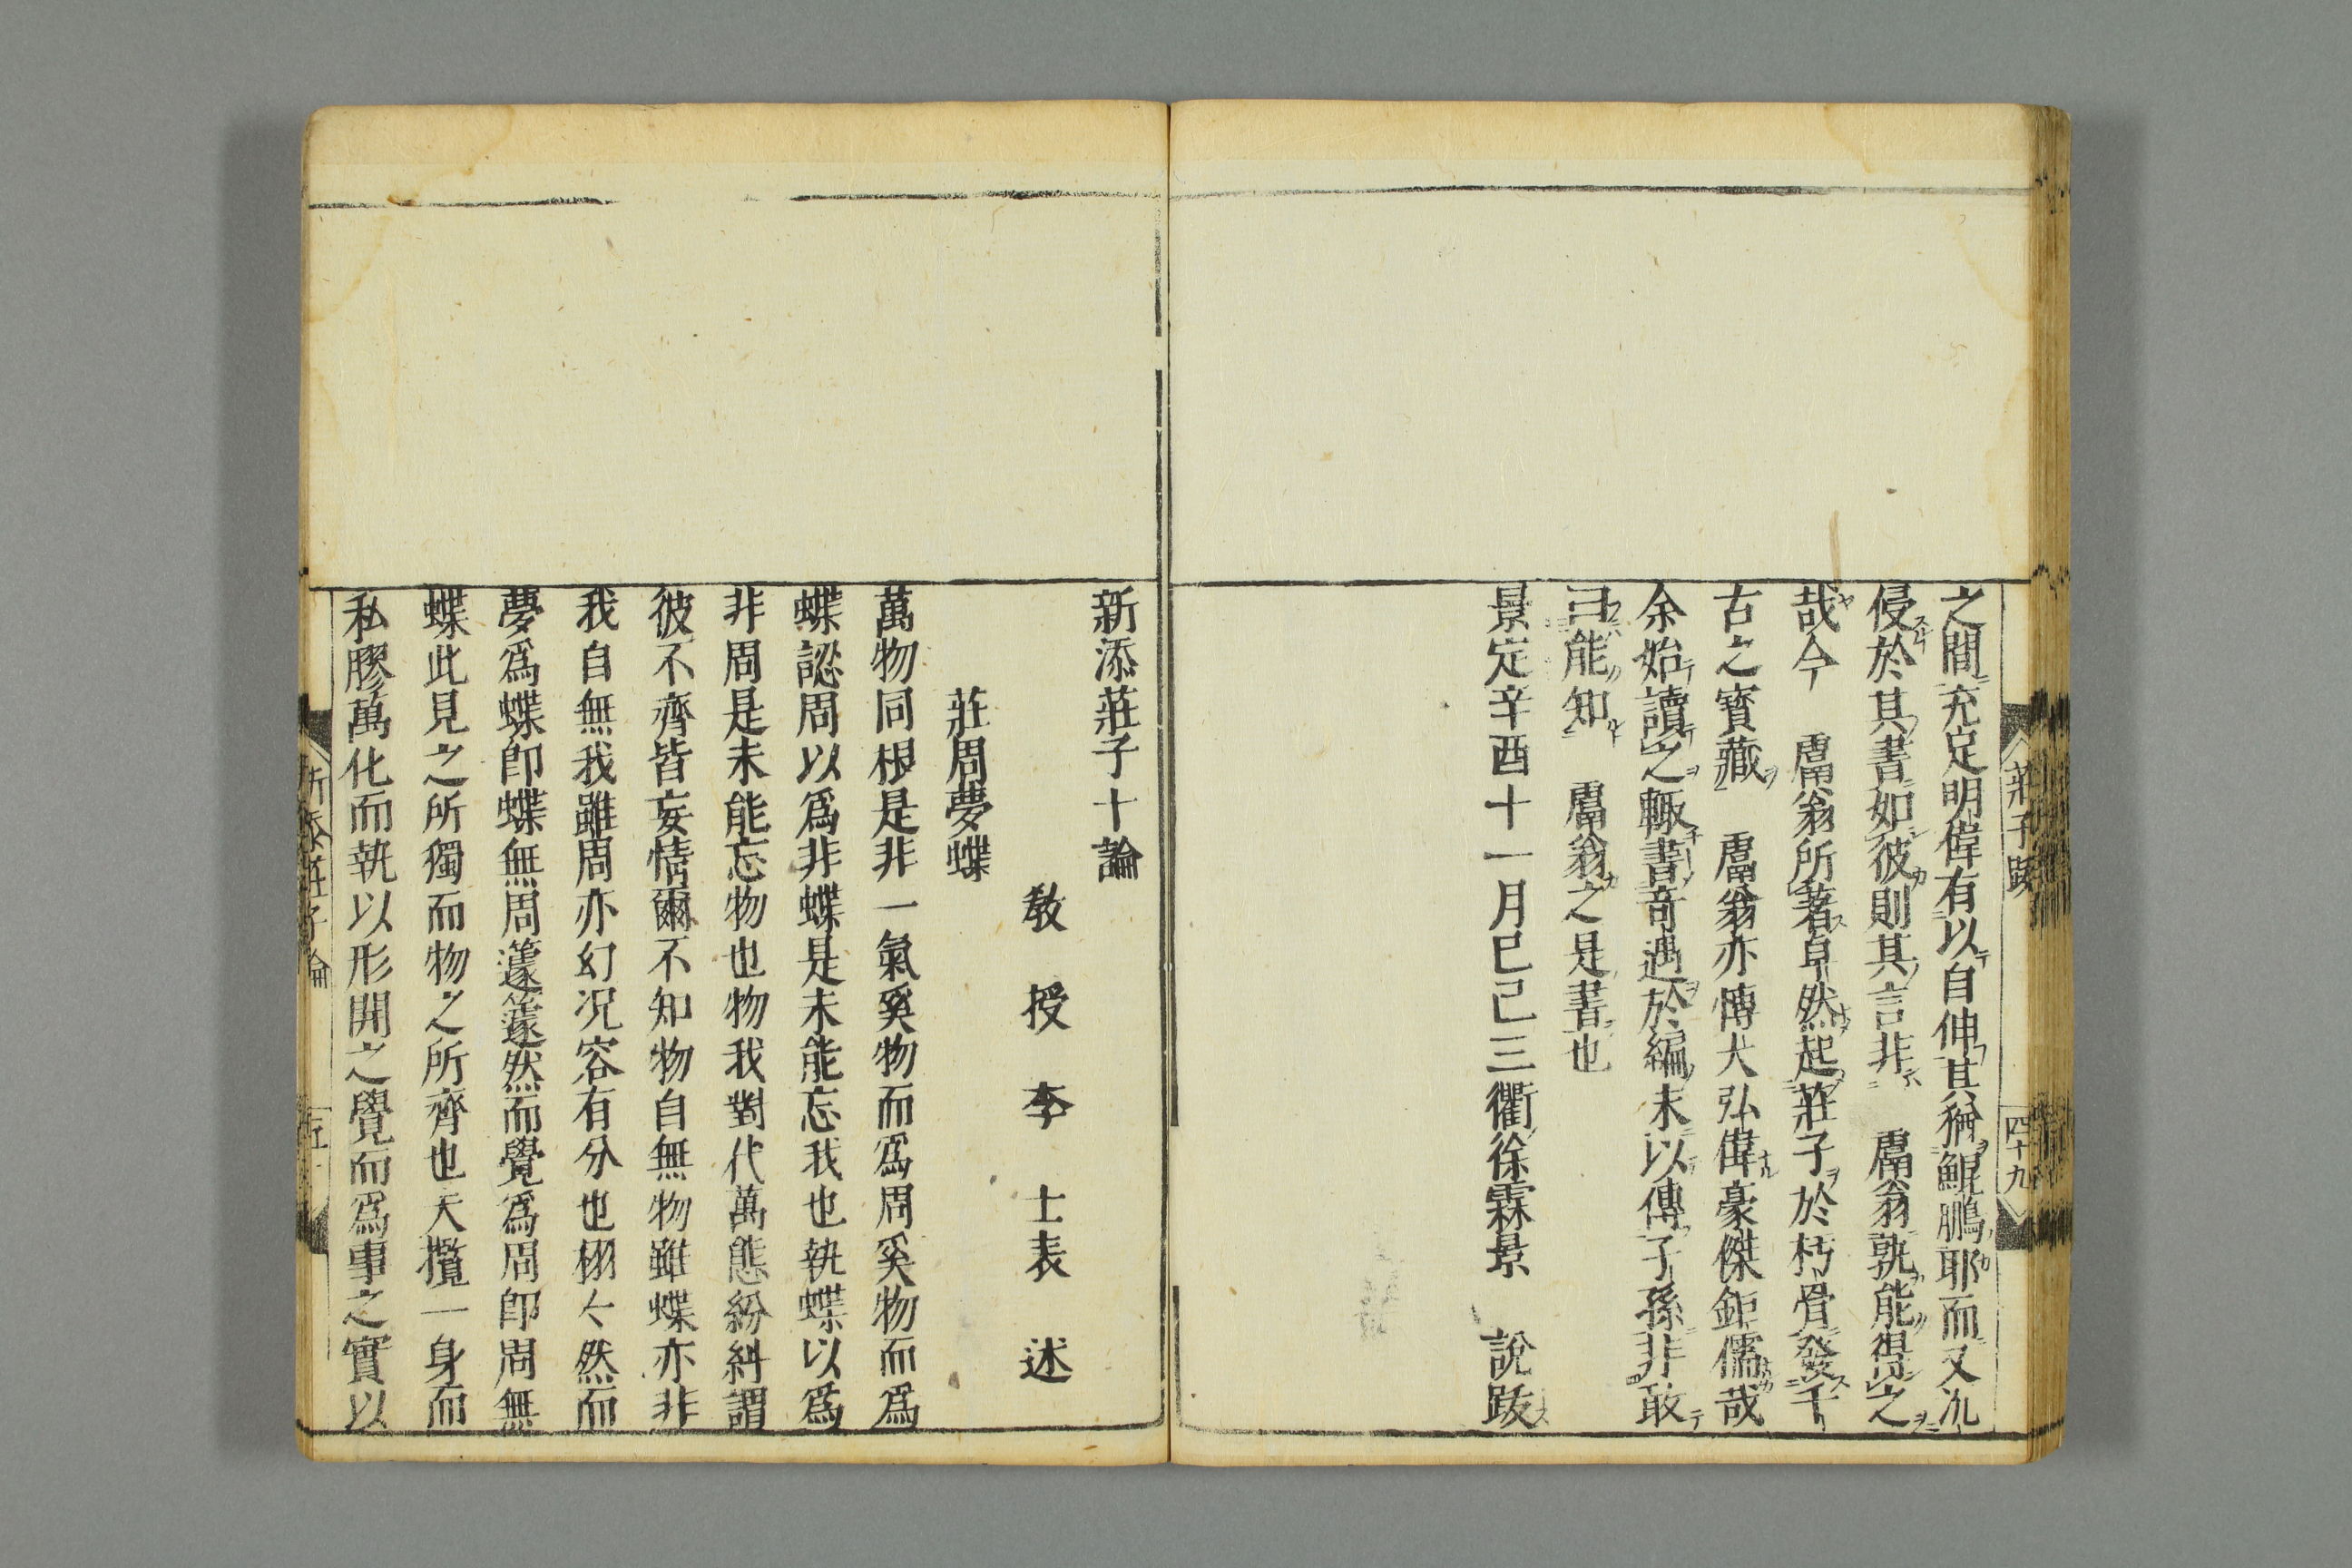 之間充足明偉有以自伸其猶鯤鵬耶而又沉
侵於其書如彼則其言非　鬳翁孰能得之
哉今　鬳翁所著卓然起莊子於朽骨發千
古之寳藏　鬳翁亦慱大弘偉豪傑鉅儒哉
余始讀之輙書竒遇於編末以傳子孫非敢
曰能知　鬳翁之是書也
景定辛酉十一月巳巳三衢徐霖景　說跋
莊子跋
四十九
新添莊子十論
教授李士表述
莊周夢蝶
萬物同根是非一氣奚物而爲周奚物而爲
蝶認周以爲非蝶是未能忘我也執蝶以爲
非周是未能忘物也物我對代萬態紛糾謂
彼不齊皆妄情爾不知物自無物雖蝶亦非
我自無我雖周亦幻況容有分也栩〻然而
夢爲蝶卽蝶無周蘧蘧然而覺爲周卽周無
蝶此見之所獨而物之所齊也夫攬一身而
私膠萬化而執以形開之覺而爲事之實以